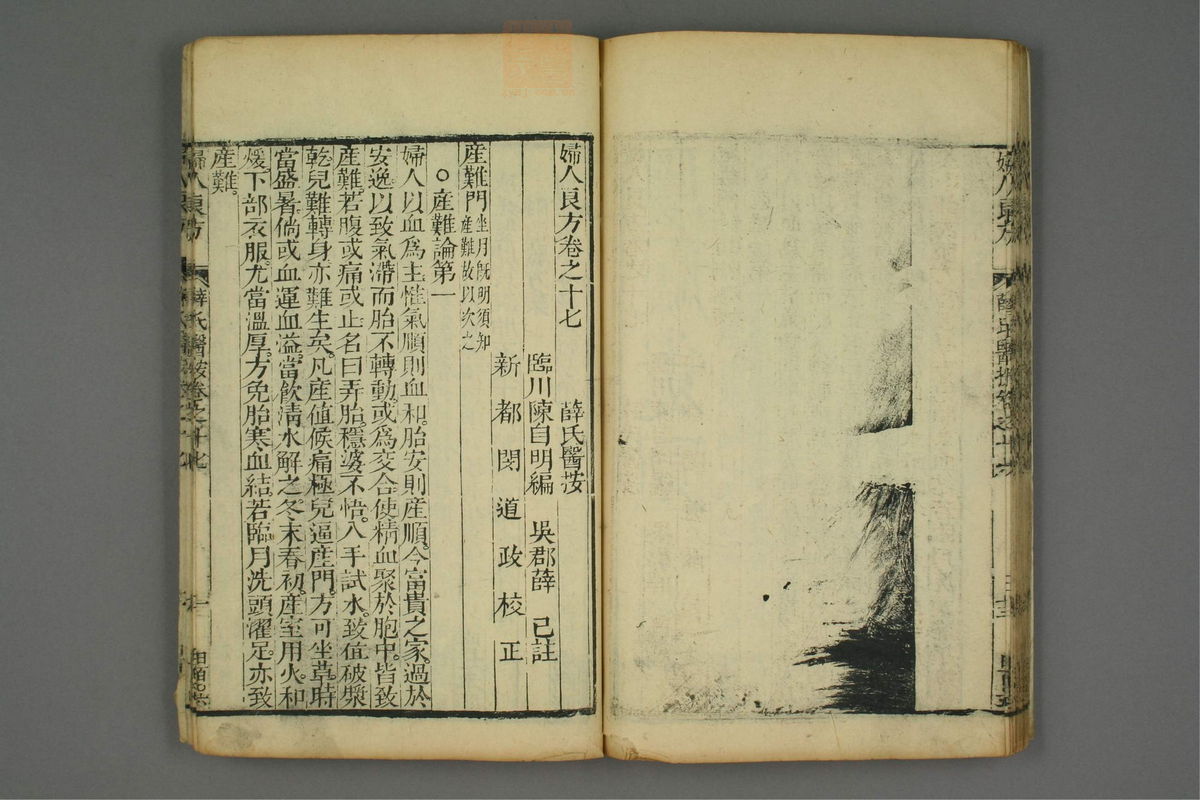 婦人良方卷之十七
薛氏醫按
臨川陳自明編 吳郡薛 己註
新都閔道政校正
產難門 坐月旣明須知
產難故以次之
○產難論第一
婦人以血爲主惟氣順則血和。胎安則產順。今富貴之家。過於
安逸以致氣滯而胎不轉動。或爲交合。使精血聚於胞中。皆致
產難。若腹或痛或止名曰弄胎。穩婆不悟。入手試水。致值破漿
乾兒難轉身亦難生矣。凡產值候痛極兒逼產門。方可坐草。時
當盛暑。倘或血運血溢。當飲淸水解之。冬末春初。產室用火。和
煖。下部衣服。尤當溫厚。方免胎寒血結。若臨月洗頭濯足。亦致
產難。
婦人良方
薛氏醫按卷之十七
一
婦人良方